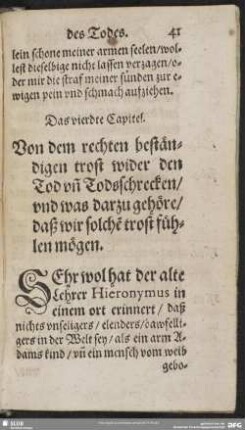 des Todes. 41
lein schone meiner armen seelen/wol-
lest dieselbige nicht lassen verzagen/o-
der mir die straf meiner sünden zur e-
wigen pein vnd schmach aufziehen.
Das vierdte Capitel.
Von dem rechten bestän-
digen trost wider den
Tod vñ Todsschrecken/
vnd was darzu gehöre/
daß wir solchē trost füh-
len mögen.
SEhr wol hat der alte
Lehrer Hieronymus in
einem ort erinnert/ daß
nichts vnseligers/ elenders/ bawfelli-
gers in der Welt sey/ als ein arm A-
dams kind/ vñ ein mensch vom weib
gebo-
SLUB
DFG